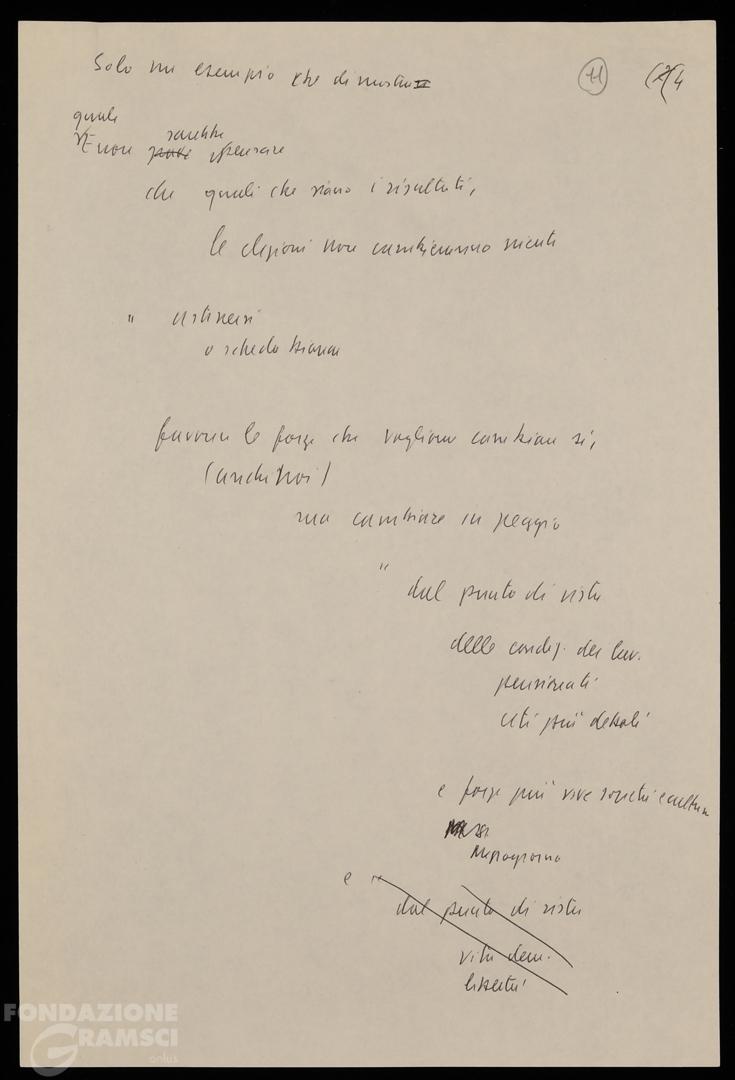 Solo un esempio che dimostra 11 4
quale
sarebbe
E non può pensare
che quali che siano i risultati,
le elezioni non cambieranno niente
" astenersi
o scheda bianca
favorire le forze che vogliono cambiare sì,
(anche noi)
ma cambiare in peggio
" dal punto di vista
delle condiz. dei lav.
pensionati
ceti più deboli
e forze più vive società e cultura
Mezzogiorno
e "
dal punto di vista
vita dem.
libertà
FONDAZIONE
GRAMSCI
onlus